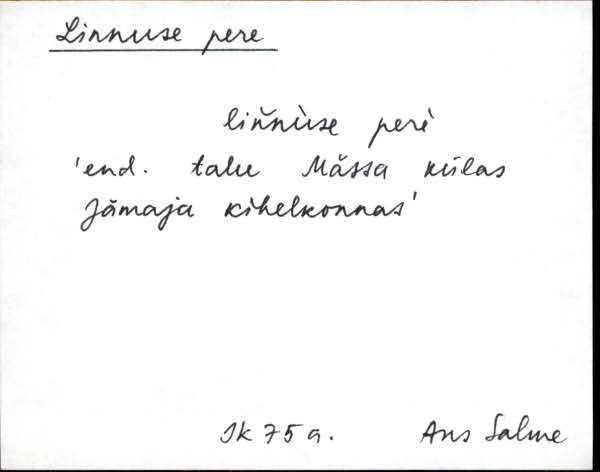 Linnuse pere
liňnùse perè
'end. talu Mässa külas
Jämaja kihelkonnas'
Jk 75 a. Ans Salme